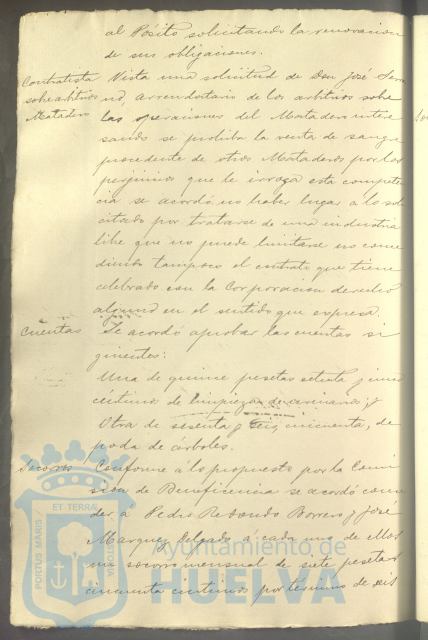 al Pósito solicitando la renovacion
de sus obligaciones.
Contratista sobre arbitrios Matadero
Vista una solicitud de Don José Serra
no, arrendatario de los arbitrios sobre
las operaciones del Matadero intere
sando se prohiba la venta de sangre
procedente de otros Mataderos por los
perjuicios que le irroga esta competen
cia se acordó no haber lugar a lo soli
citado por tratarse de una industria
libre que no puede limitarse no conce
diendo tampoco el contrato que tiene
celebrado con la Corporacion derecho
alguno en el sentido que expresa.
Cuentas
Se acordó aprobar las cuentas si
guientes:
Una de quince pesetas setenta y cinco
céntimos de limpieza de
Otra de sesenta y seis, cincuenta, de
poda de árboles.
Socorros
Conforme á lo propuesto por la Comi
sion de Beneficencia se acordó conce
der a Pedro Redondo Borrero y José
Marquez Delgado á cada uno de ellos
un socorro mensual de siete pesetas
cincuenta céntimos por término de seis
PORTUS MARIS ET TERRAE CUSTODIA
Ayuntamiento de
HUELVA